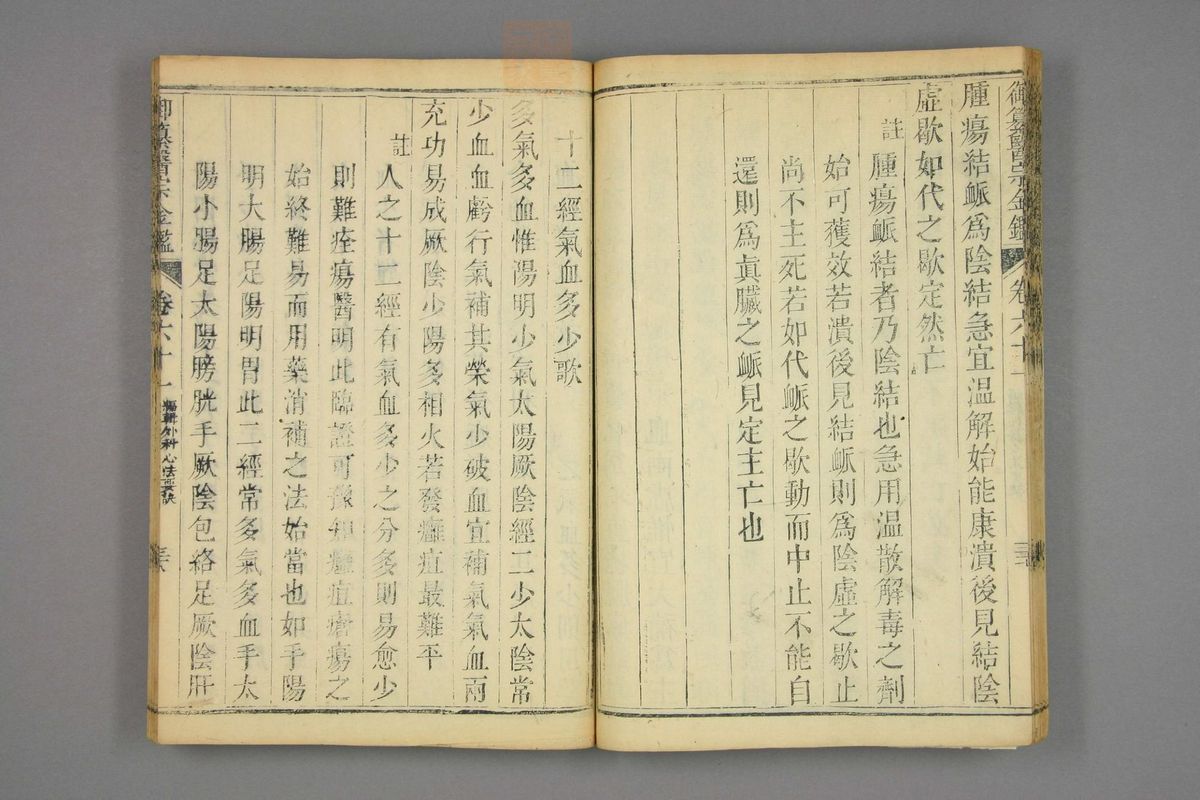 御纂醫宗金鑑 卷六十一
腫瘍結脈爲陰結急宜溫解始能康潰後見結陰
虛歇如代之歇定然亡
註 腫瘍脈結者乃陰結也急用溫散解毒之劑
始可獲效若潰後見結脈則爲陰虛之歇止
尚不主死若如代脈之歇動而中止不能自
還則爲眞臟之脈見定主亡也
十二經氣血多少歌
多氣多血惟陽明少氣太陽厥陰經二少太陰常
少血血虧行氣補其榮氣少破血宜補氣氣血兩
充功易成厥陰少陽多相火若發癰疽最難平
註 人之十二經有氣血多少之分多則易愈少
則難痊瘍醫明此臨證可豫知癰疽瘡瘍之
始終難易而用藥消補之法始當也如手陽
明大腸足陽明胃此二經常多氣多血手太
陽小腸足太陽膀胱手厥陰包絡足厥陰肝
御纂醫宗金鑑 卷六十一 編輯外科心法要訣